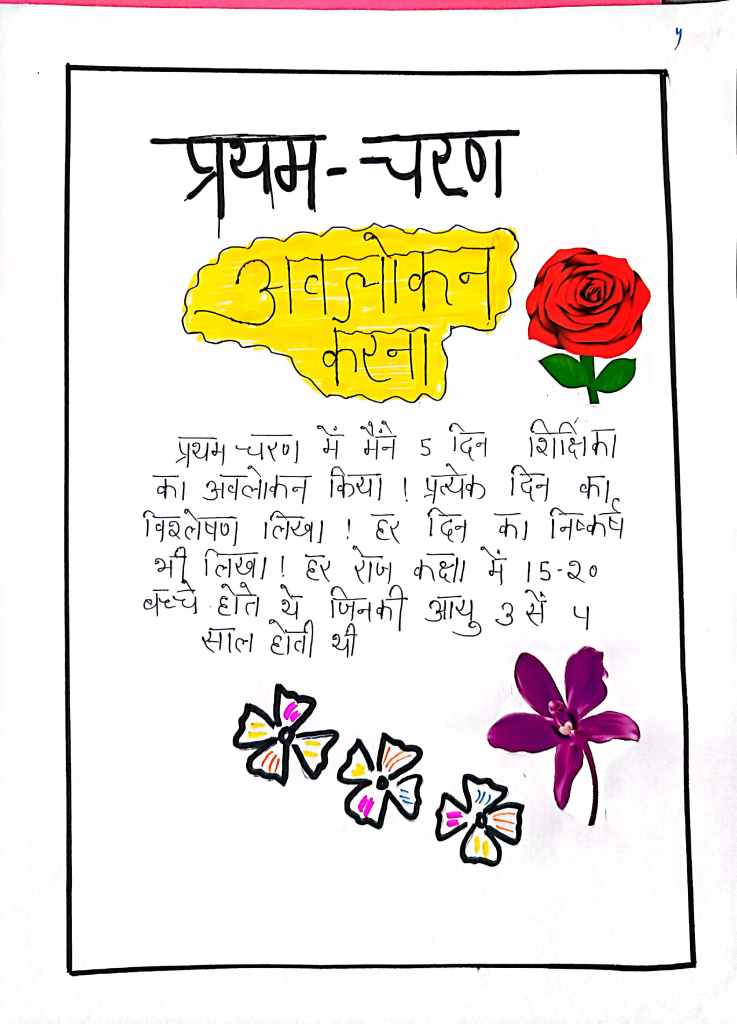 प्रथम-चरण
अवलोकन
करना
प्रथम चरण में मैंने 5 दिन शिक्षिका
का अवलोकन किया ! प्रत्येक दिन का
विश्लेषण लिखा ! हर दिन का निष्कर्ष
भी लिखा ! हर रोज कक्षा में 15-२०
बच्चे होते थे जिनकी आयु 3 सें ५
साल होती थी